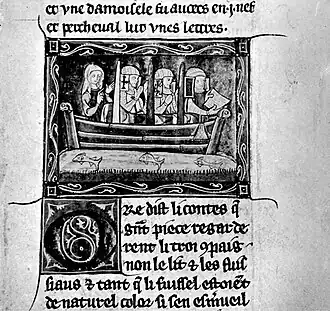 et vne damoisele su autres en .i. nef
et percheual lut vnes lettres.
ORe dist li contes q̃
gñt piece regarde
rent li troi ꝯpaig
non le lit & les fuis
siaus & tant q̃ li fuissel estoiẽt
de naturel color si sen esmueil